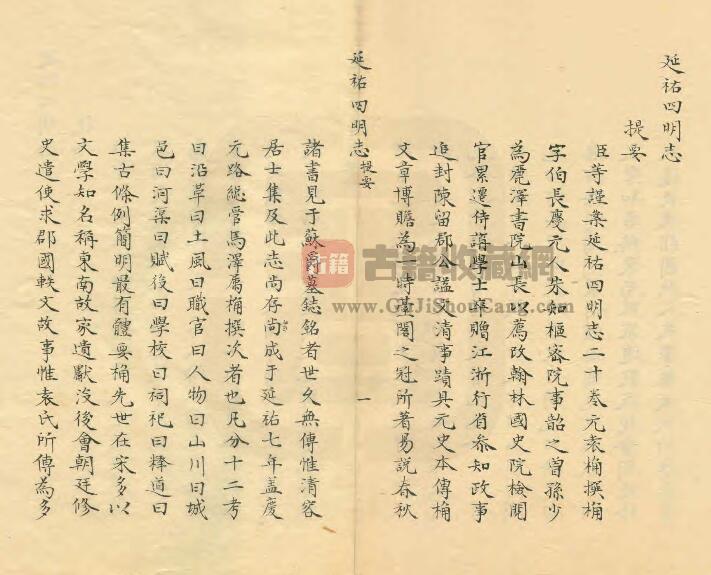 延祐四明志
提要
臣等謹案延祐四明志二十卷元袁桷撰桷
字伯長慶元人宋知樞密院事韶之曾孫少
為麗澤書院山長以薦改翰林國史院檢閱
官累遷侍講學士卒贈江浙行省參知政事
追封陳留郡公謚文清事蹟具元史本傳桷
文章博贍為一時臺閣之冠所著易說春秋
延祐四明志 提要 一
諸書見于蘇爵墓誌銘者世久無傳惟清容
居士集及此志尚存尚成于延祐七年蓋慶
元路總管馬澤屬桷撰次者也凡分十二考
曰沿革曰土風曰職官曰人物曰山川曰城
邑曰河渠曰賦役曰學校曰祠祀曰釋道曰
集古條例簡明最有體要桷先世在宋多以
文學知名稱東南故家遺獻沒後會朝廷修
史遣使求郡國軼文故事惟袁氏所傳為多
古籍收藏網
www.GuJiShouCang.com